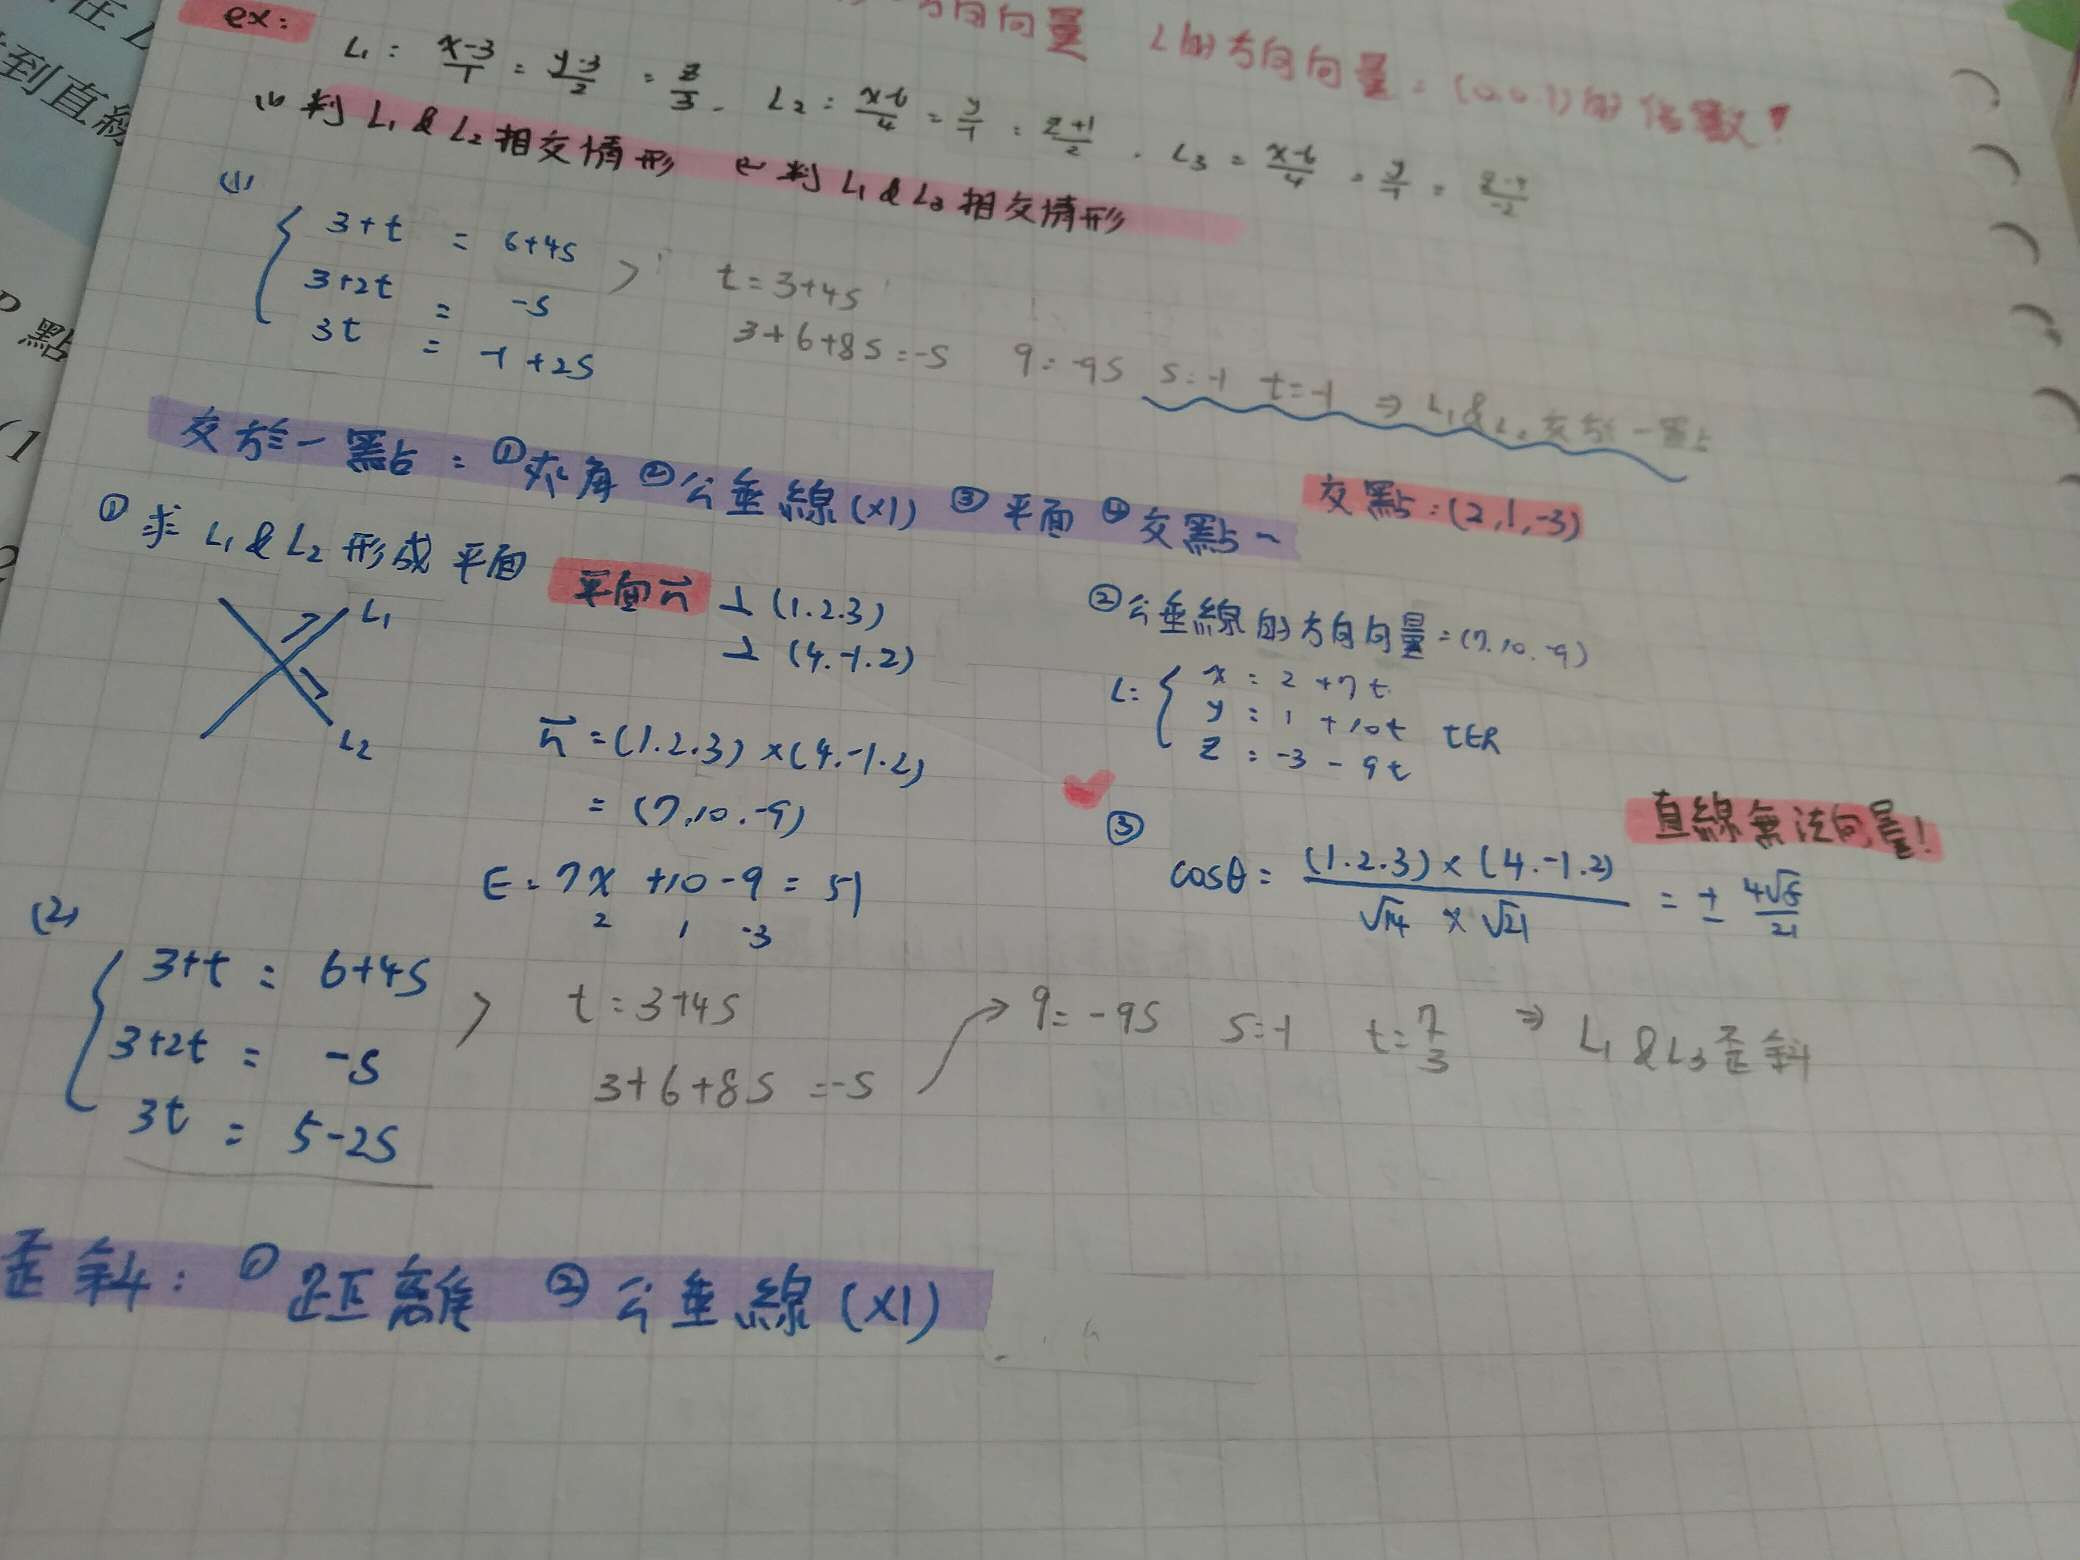 方向向量 L的方向向量=(0.0.1)的倍數!
ex:
L₁: (x-3)/1 = (y-3)/2 = z/3. L₂: (x-6)/4 = y/-1 = (z+1)/2. L₃ = (x-6)/4 = y/-1 =
(1) 判 L₁ & L₂ 相交情形 (2) 判 L₁ & L₃ 相交情形
(1)
3+t = 6+4s
3+2t = -s
3t = -1+2s
t=3+4s
3+6+8s=-s 9=-9s s=-1 t=-1 ⇒ L₁&L₂交於一點
交於一點: ①夾角 ②公垂線(x1) ③平面 ④交點~
交點:(2,1,-3)
① 求 L₁ & L₂ 形成平面
平面n⃗ ⊥ (1.2.3)
⊥ (4.-1.2)
L₁
L₂
n⃗ = (1.2.3) × (4.-1.2)
= (7,10.-9)
E: 7x +10 -9 = 51
2 1 -3
②公垂線的方向向量=(7.10.-9)
L:
x = 2 +7t
y = 1 +10t t∈R
z = -3 - 9t
③
直線無法向量!
cosθ = (1.2.3) × (4.-1.2) / √14 × √21 = ± 4√6/21
(2)
3+t = 6+4s
3+2t = -s
3t = 5-2s
t=3+4s
3+6+8s =-s
9=-9s s=-1 t=7/3 ⇒ L₁ & L₃ 歪斜
歪斜: ① 距離 ② 公垂線(x1)
到直線
點
(1